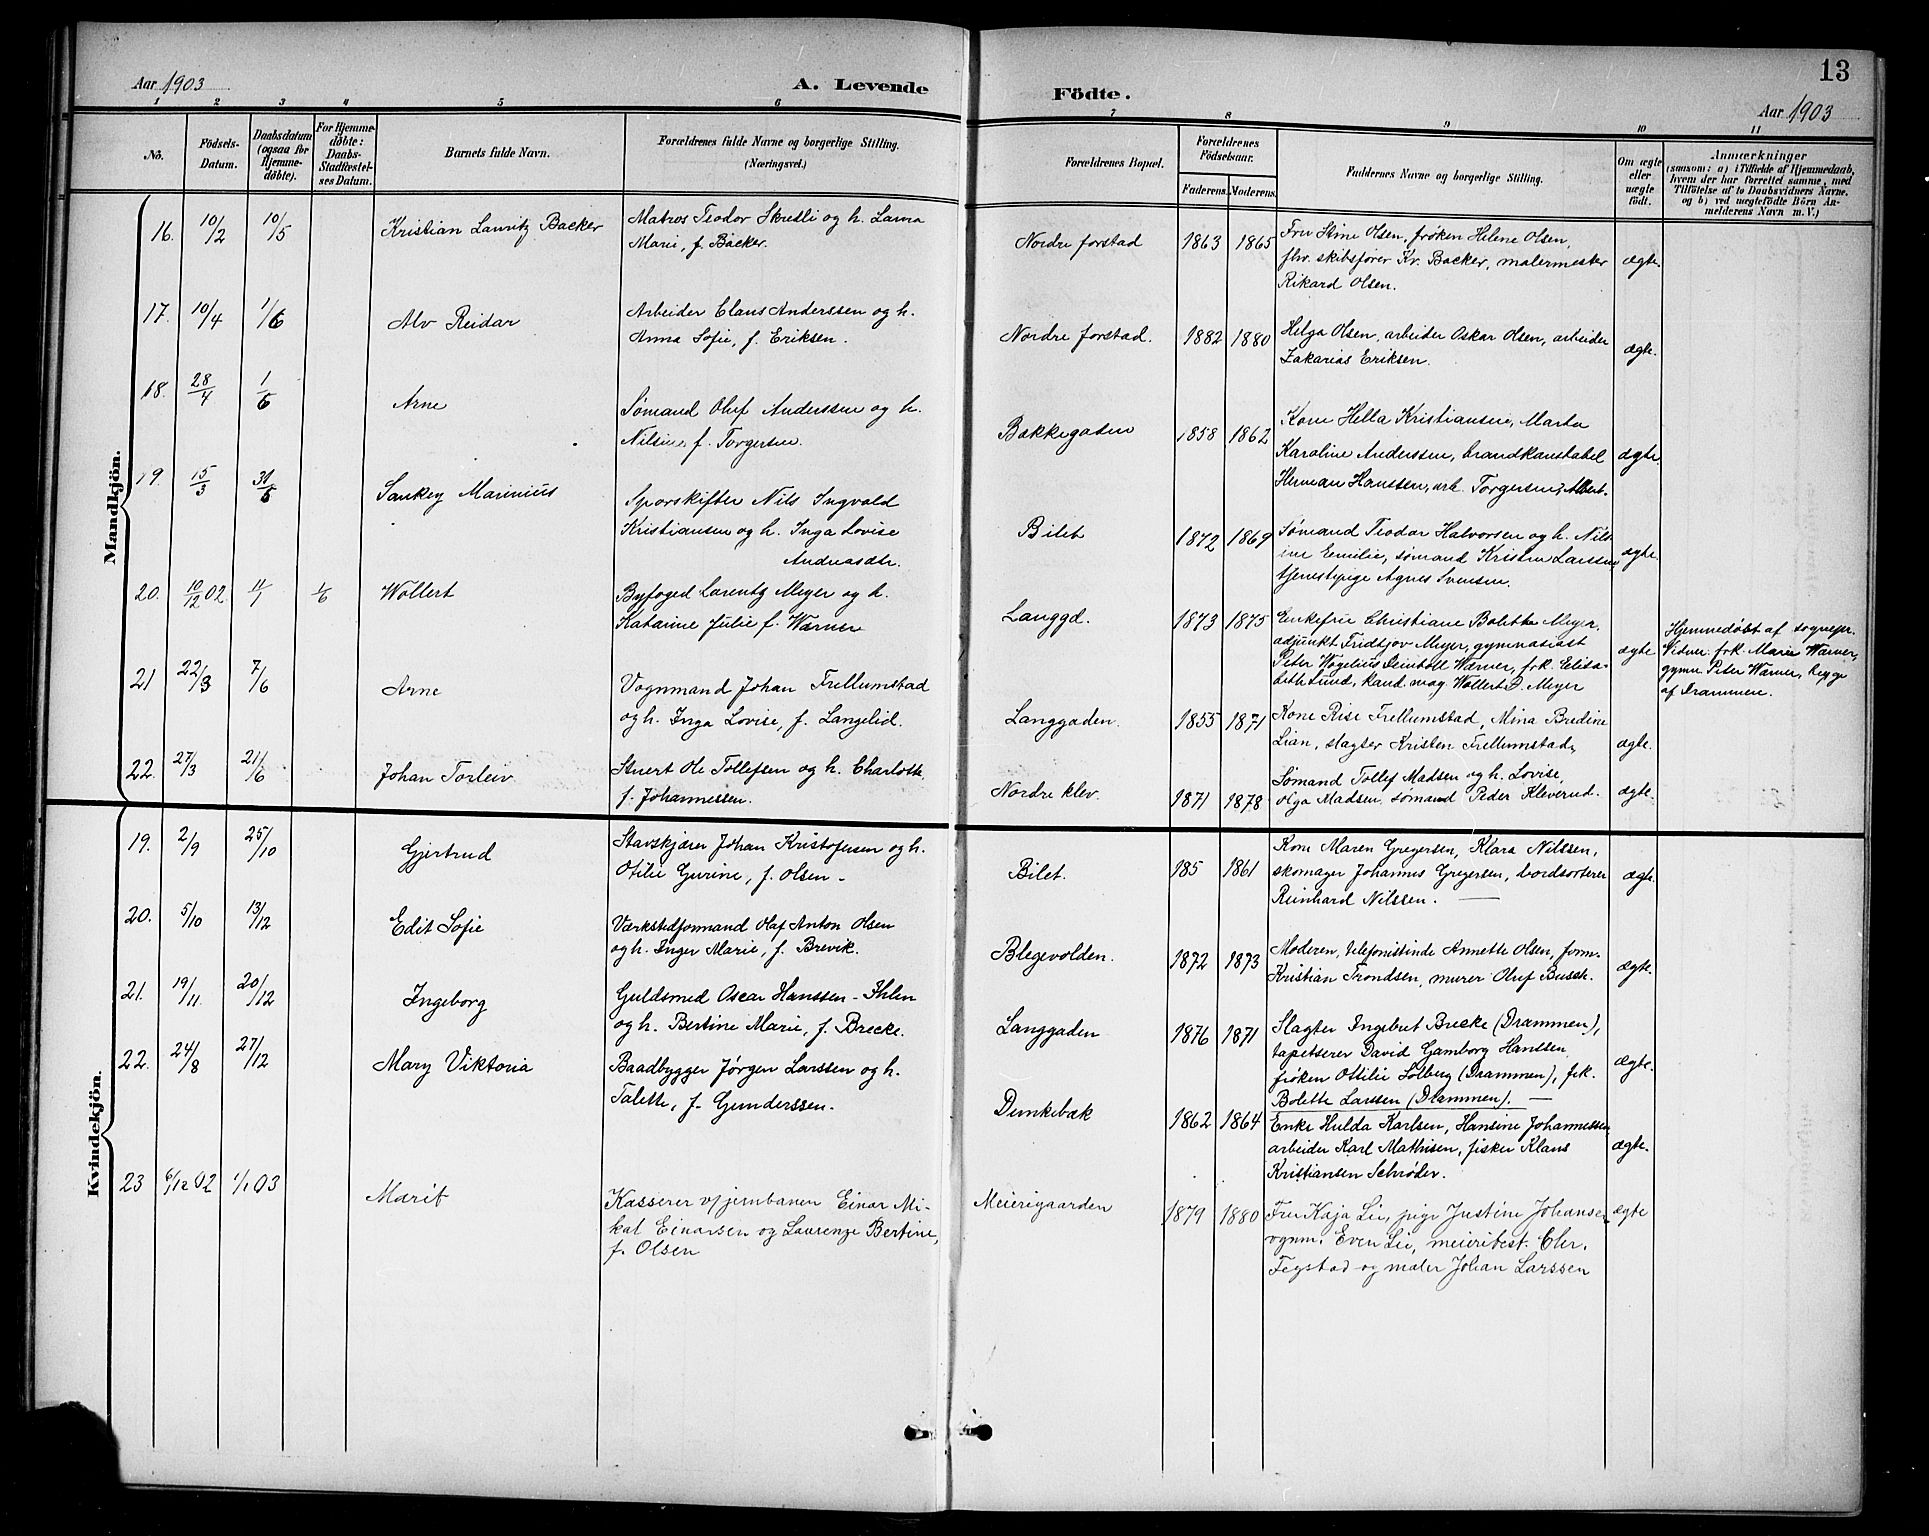 Aar 1903
A. Levende
Födte.
13
Aar 1903
1 2 3 4 5 6 7 8 9 10 11
Nô.
Födsels-
Datum.
Daabsdatum
(ogsaa for
Hjemme-
döbte).
For Hjemme-
döbte:
Daabs-
Stadfæstel-
ses Datum.
Barnets fulde Navn.
Forældrenes fulde Navne og borgerlige Stilling.
(Næringsvei.)
Forældrenes Bopæl.
Forældrenes
Födselsaar.
Faderens. Moderens.
Faddernes Navne og borgerlige Stilling.
Om ægte
eller
uægte
födt.
Anmærkninger
(saasom: a) i Tilfælde af Hjemmedaab,
hvem der har forrettet samme, med
Tilföielse af to Daabsvidners Navne.
og b) ved uægtefödte Börn An-
melderens Navn m. V.)
Mandkjön.
16. 10/2 10/5 Kristian Lauritz Backer
Matros Teodor Skretli og h. Laura
Marie, f. Backer.
Nordre forstad 1863 1865
Fru Stine Olsen, frøken Helene Olsen,
fhv. skibsfører Kr. Backer, malermester
Rikard Olsen.
ægte.
17. 10/4 1/6 Alv Reidar
Arbeider Claus Anderssen og h.
Anna Sofie, f. Eriksen.
Nordre forstad. 1882 1880
Helga Olsen, arbeider Oskar Olsen, arbeider
Zakarias Eriksen.
ægte.
18. 28/4 1/6 Arne
Sømand Oluf Anderssen og h.
Nilsine, f. Torgersen.
Bakkegaden 1858 1862
Kone Hella Kristiansen, Marta
Karoline Anderssen, brandkonstabel
Herman Hanssen, arb. Torgersen, Albert.
ægte.
19. 15/3 31/5 Sankey Marinius
Sporskifter Nils Ingvald
Kristiansen og h. Inga Lovise
Andreasdtr.
Bilet 1872 1869
Sømand Teodor Halvorsen og h. Nils
ine Emilie, sømand Kristen Larssen,
tjenestepige Agnes Svensen.
ægte.
20. 10/12 02. 11/1 1/6 Wollert
Byfoged Lorentz Meyer og h.
Katarine Julie f. Warner
Langgd. 1873 1875
Enkefrue Christiane Bolette Meyer,
adjunkt Fridtjov Meyer, gymnasiast
Peter Vogelius Deinboll Warner, frk. Elisa-
beth Lund, kand. mag. Wollert D. Meyer
ægte
Hjemmedøbt af sognepr.
Vidner: frk. Marie Warner,
gymn. Peter Warner, begge
af Drammen.
21 22/3 7/6 Arne
Vognmand Johan Frellumstad
og h. Inga Lovise, f. Langelid.
Langgaden. 1855 1871
Kone Rise Frellumstad, Mina Bredine
Lian, slagter Kristen Frellumstad,
ægte.
22. 27/3 21/6 Johan Torleiv.
Stuert Ole Tollefsen og h. Charlotte
f. Johannessen.
Nordre klev. 1871 1878
Sømand Tollef Madsen og h. Lovise,
Olga Madsen, sømand Peder Kleverud.
ægte.
Kvindekjön.
19. 2/9 25/10 Gjertrud
Stavskjærer Johan Kristofersen og h.
Otilie Gurine, f. Olsen -
Bilet. 185 1861
Kone Maren Gregersen, Klara Nilssen,
skomager Johannes Gregersen, bordsorterer
Reinhard Nilssen. —
ægte.
20. 5/10 13/12 Edit Sofie
Værkstedformand Olaf Anton Olsen
og h. Inger Marie, f. Brevik.
Blegevolden. 1872 1873
Moderen, telefonistinde Annette Olsen, form.
Kristian Trondsen, murer Oluf Busch.
ægte.
21. 19/11 20/12 Ingeborg
Guldsmed Oscar Hanssen - Ihlen
og h. Bertine Marie, f. Brecke.
Langgaden 1876 1871
Slagter Ingebret Brecke (Drammen),
tapetserer David Gamborg Hanssen,
frøken Ottilie Solberg (Drammen), frk.
Bolette Larssen (Drammen). —
ægte.
22. 24/8 27/12 Mary Viktoria
Baadbygger Jørgen Larssen og h.
Talette, f. Gunderssen.
Dunkebæk 1862 1864
Enke Hulda Karlsen, Hansine Johannessen,
arbeider Karl Mathisen, fisker Klaus
Kristiansen Schrøder.
ægte.
23 6/12 02 1/1 03 Marit
Kasserer v/ jernbanen Einar Mi-
kal Einarsen og Laurenze Bertine,
f. Olsen
Meierigaarden 1879 1880
Fru Kaja Lie, pige Justine Johansen,
vognm. Even Lie, meieribest. Chr.
Fegstad og maler Johan Larssen
ægte